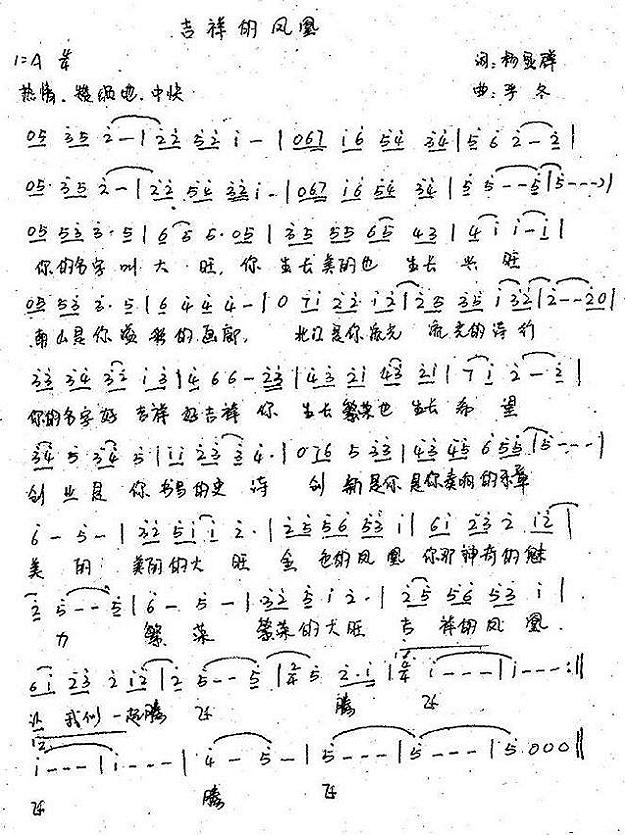 吉祥的凤凰
1=A 4/4 词:杨显群
热情. 中快 曲:李冬
05 35 2 - | 22 52 1 - | 067 16 54 34 | 5 6 2 - 2 |
05. 35 2 - | 22 54 32 1 - | 067 16 54 34 | 5 5 - - 5 | 5 - - - |
05 53 3. 5 | 6 5 5. 05 | 35 55 65 43 | 4 1 1 - 1 |
你的名字叫大旺, 你生长美丽也生长兴旺
05 53 3. 5 | 6 4 4 4 - | 0 71 22 12 | 25 35 1 32 | 2 - - 20 |
南山是你的画廊, 北江是你流光 流光的诗行
33 34 32 13 | 4 6 6 - 23 | 43 21 43 21 | 7 1 2 - 2 |
你的名字好吉祥好吉祥 你生长繁荣也生长希望
34 5 34 5 | 11 23 3 4. | 076 5 33 | 43 45 6 55 | 5 - - - |
创业是你书写的史诗 创新是你是你奏响的乐章
6 - 5 - | 32 51 1 2. | 25 56 53 1 | 61 23 2 12 |
美丽 美丽的大旺 金色的凤凰 你那神奇的魅
2 5 - - 5 | 6 - 5 - | 32 5 1 2. | 25 56 53 1 |
力 繁荣 繁荣的大旺 吉祥的凤凰.
61 23 2 12 | 2 5 - - 5 | 2/4 5 2.1 | 4/4 1 - - - | 1 - - - :||
让我们一起腾飞 腾飞
1 - - - | 1 - - - | 4 - 5 - | 5 - - - | 5 - - - | 5 000 ||
飞 腾飞